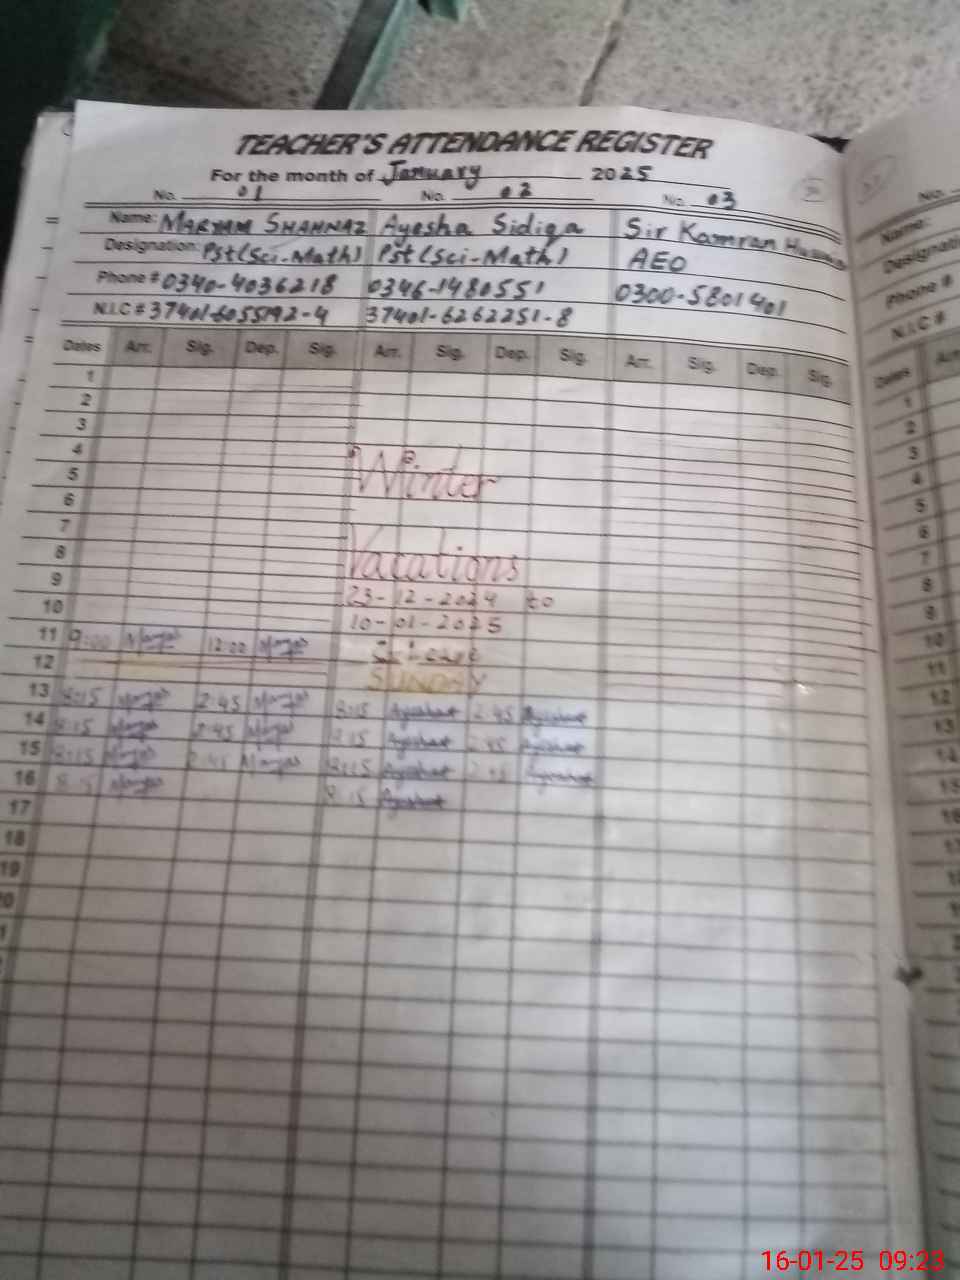 TEACHER'S ATTENDANCE REGISTER
For the month of January 2025
No. 01 No. 02 No. 03
Name: MARYAM SHAHNAZ Ayesha Sidiqa Sir Kamran
Designation: Pst(Sci-Math) Pst(Sci-Math) AEO
Phone # 0340-4036218 0346-1480551 0300-5801401
N.I.C # 37401-6055192-4 37401-6262251-8
Dates Arr. Sig. Dep. Sig. Arr. Sig. Dep. Sig. Arr. Sig. Dep. Sig.
1
2
3
4
Winter
5
6
7
8 Vacations
9
10 23-12-2024 to
10-01-2025
11 9:00 12:00
12 SUNDAY
13 8:15 2:45 8:15 2:45
14 8:15 2:45 8:15 2:45
15 8:15 2:45 8:15 2:45
16 8:15 8:15
17
18
19
20
Name:
Designati
Phone #
N.I.C #
Dates
1
2
3
4
5
6
7
8
9
10
11
12
13
14
15
16
16-01-25 09:23